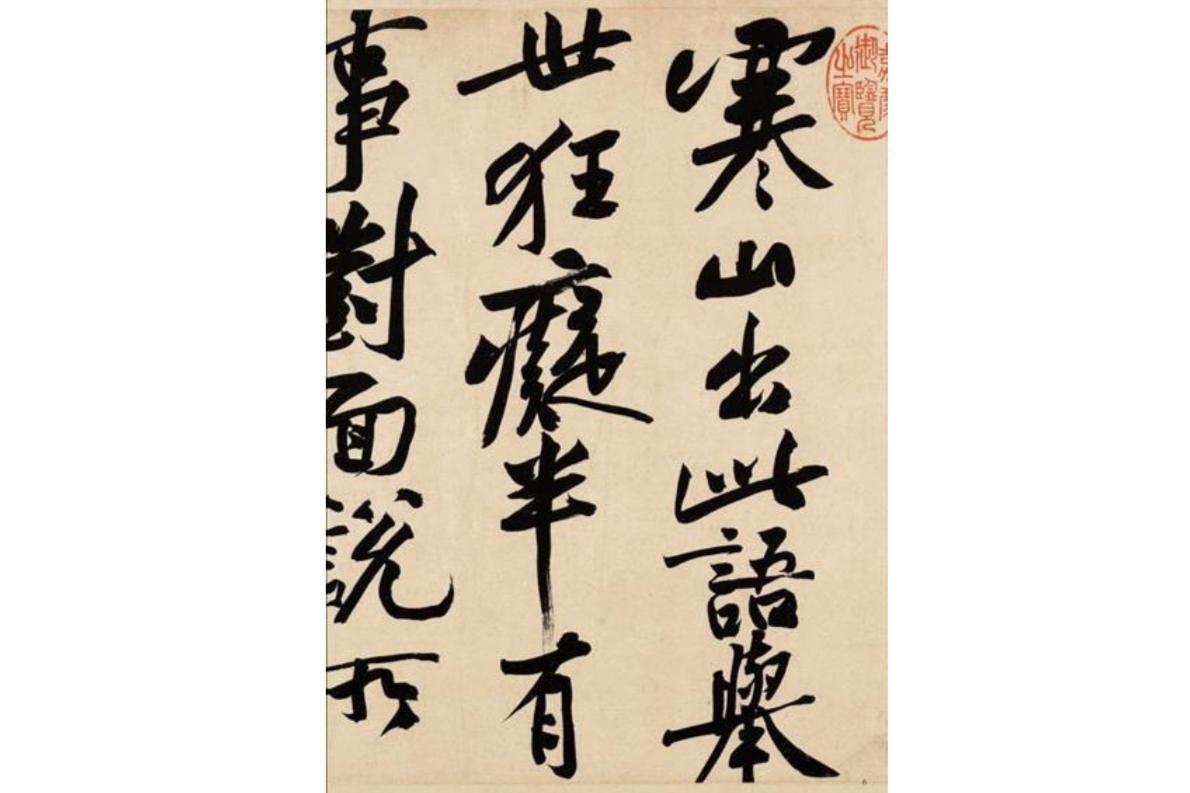 嘉慶
御覽
之寶
寒山出此語舉
世狂癡半有
事對面說所